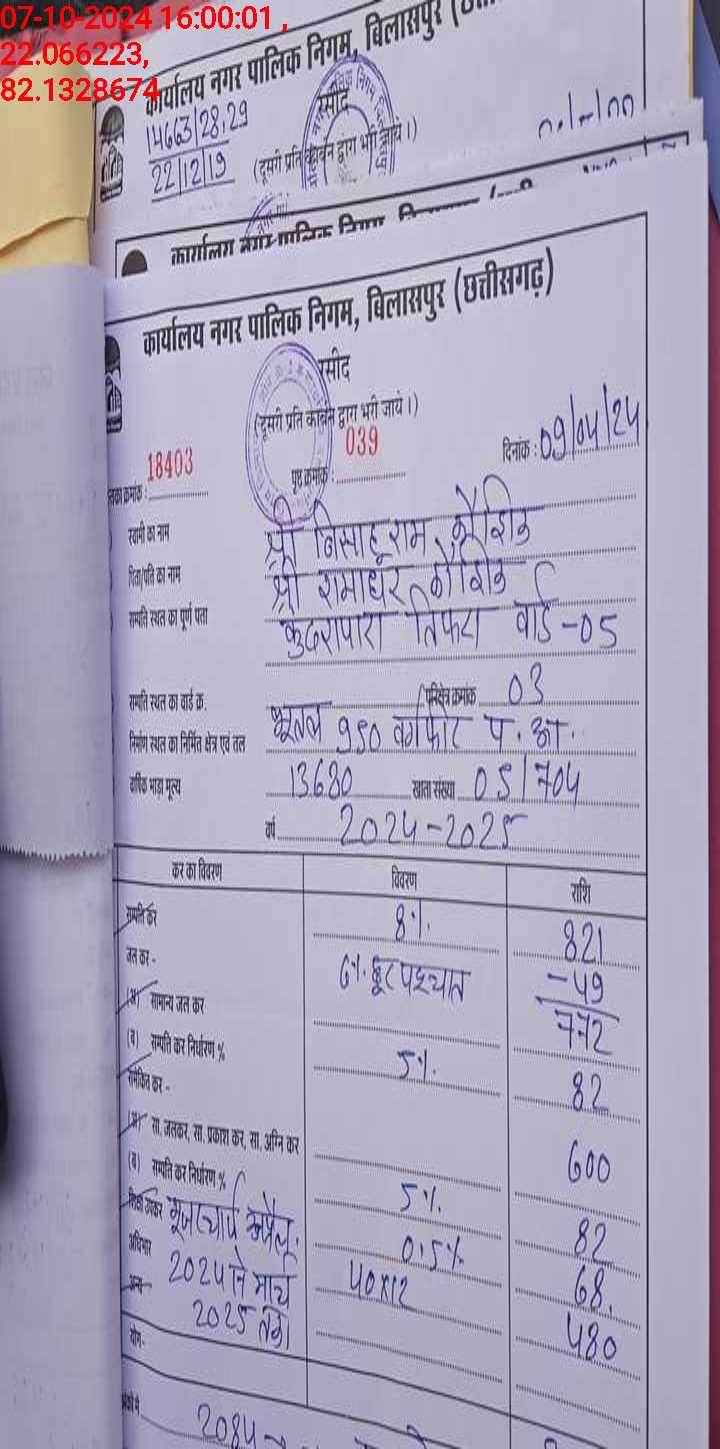 07-10-2024 16:00:01 ,
22.066223,
82.1328674
कार्यालय नगर पालिक निगम, बिलासपुर
14663/28,29
रसीद
22/12/19
(दूसरी प्रति कार्बन द्वारा भरी जाये।)
कार्यालय नगर पालिक निगम
कार्यालय नगर पालिक निगम, बिलासपुर (छत्तीसगढ़)
रसीद
(दूसरी प्रति कार्बन द्वारा भरी जाये।)
18403 पृष्ठ क्रमांक : 039 दिनांक : 09/04/24
स्वामी का नाम श्री बिसाहू राम कौशिक
पिता/पति का नाम श्री रामाधर कौशिक
सम्पति स्थल का पूर्ण पता कुदरापारा तिफरा वार्ड -05
सम्पति स्थल का वार्ड क्र. परिक्षेत्र क्रमांक 03
निर्माण स्थल का निर्मित क्षेत्र एवं तल भूतल 950 वर्गफीट प. आ.
वार्षिक भाड़ा मूल्य 13680 खाता संख्या 05/704
वर्ष 2024-2025
कर का विवरण विवरण राशि
सम्पति कर 8% 821
जल कर - 6% छूट पश्चात -49
(अ) सामान्य जल कर 772
(ब) सम्पति कर निर्धारण % 5% 82
समेकित कर -
(अ) सा. जलकर, सा. प्रकाश कर, सा. अग्नि कर 600
(ब) सम्पति कर निर्धारण % 5% 82
शिक्षा उपकर यूजरचार्ज अप्रैल 0.5% 68
अधिभार 2024 से मार्च 40x12 480
अन्य 2025 तक।
योग-
2084